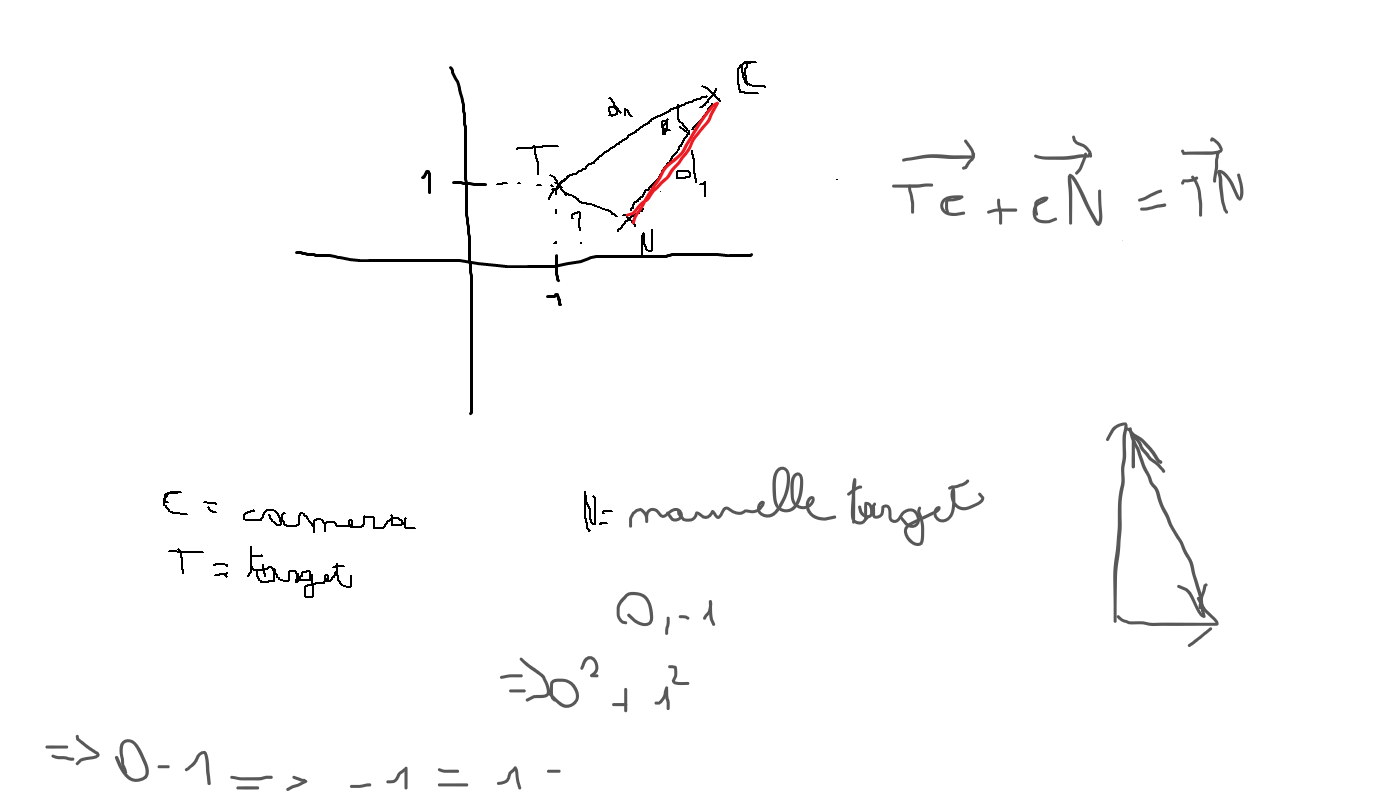 C
d₁
α
T
1
d₁
?
N
1
TC + CN = TN
C = camera
T = target
N = nouvelle target
0, -1
=> 0² + 1²
=> 0 - 1 => -1 = 1 -